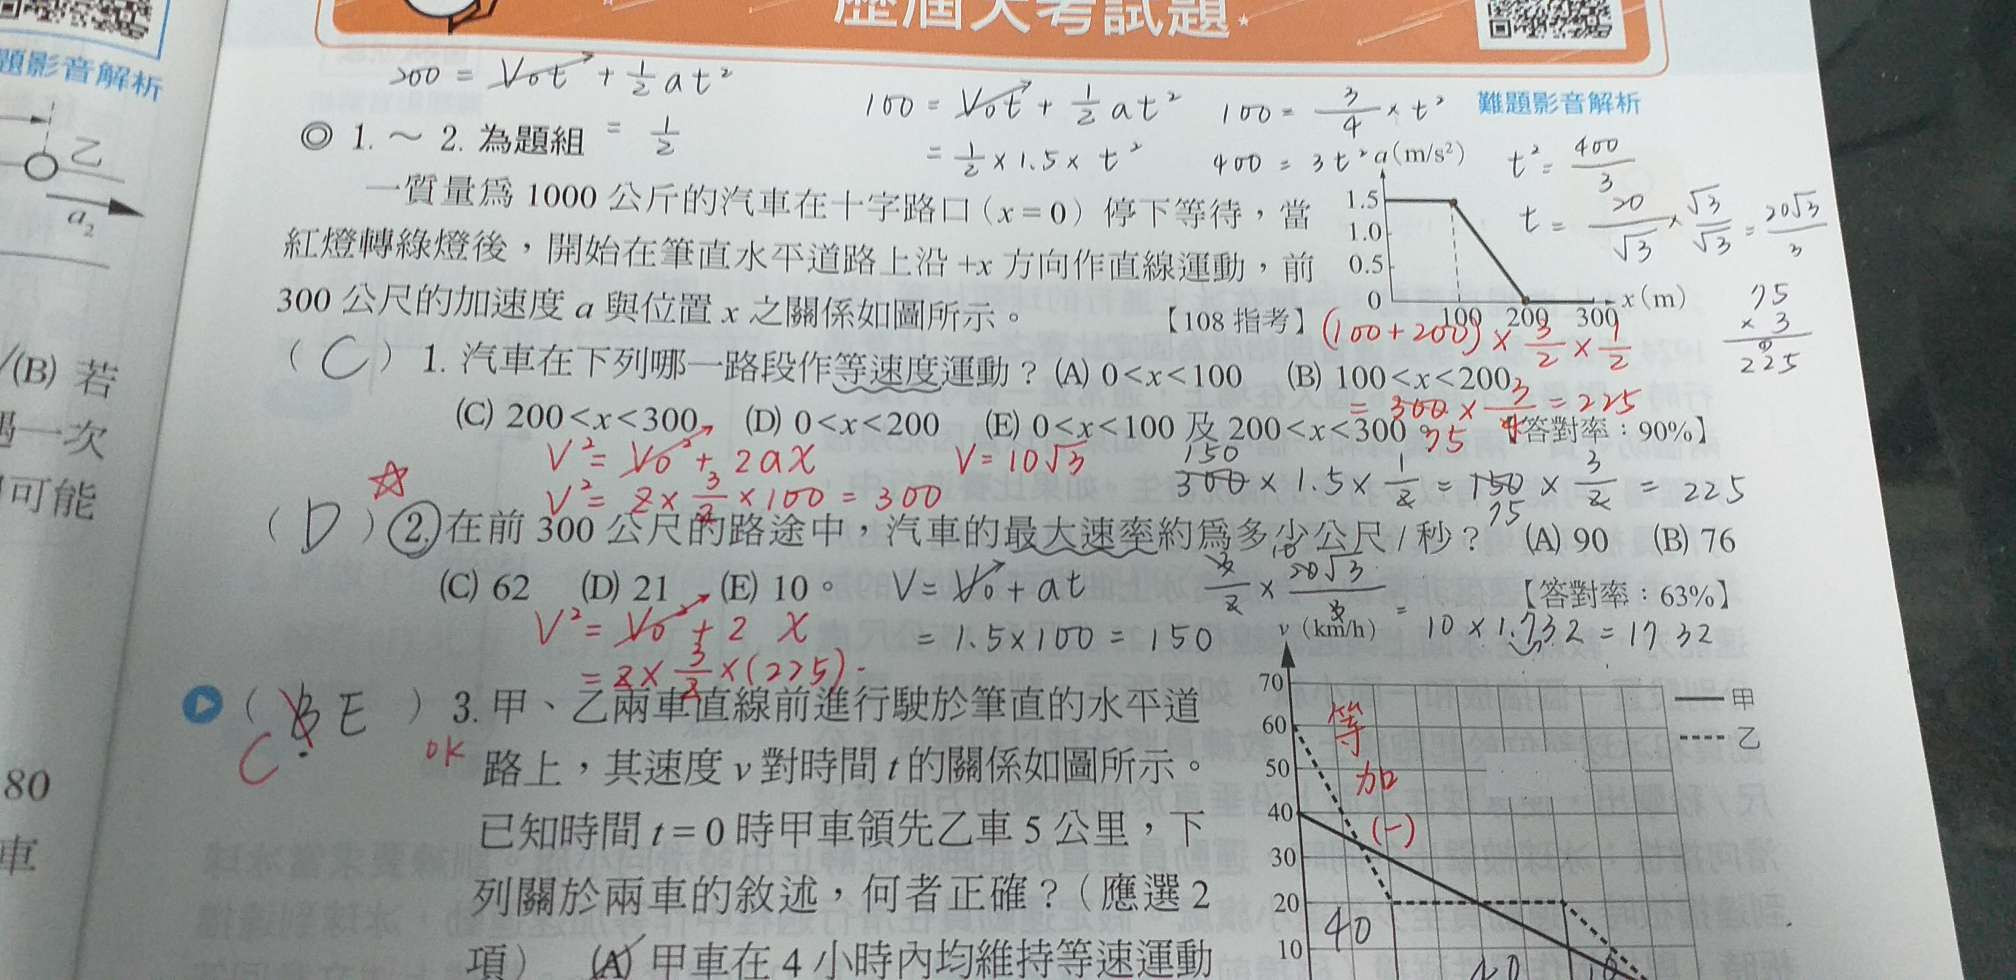 歷屆大考試題
題影音解析
難題影音解析
200 = V₀t + 1/2 at²
= 1/2
100 = V₀t + 1/2 at²
= 1/2 × 1.5 × t²
100 = 3/4 × t²
400 = 3t²
t² = 400/3
t = 20/√3 × √3/√3 = 20√3/3
◎ 1. ～ 2. 為題組
一質量為 1000 公斤的汽車在十字路口(x=0)停下等待，當
紅燈轉綠燈後，開始在筆直水平道路上沿 +x 方向作直線運動，前
300 公尺的加速度 a 與位置 x 之關係如圖所示。 【108 指考】
a(m/s²)
1.5
1.0
0.5
0
100 200 300 x(m)
75
× 3
225
(100+200) × 3/2 × 1/2
= 300 × 3/4 = 225
75
( C ) 1. 汽車在下列哪一路段作等速度運動？(A) 0<x<100 (B) 100<x<200
(C) 200<x<300 (D) 0<x<200 (E) 0<x<100 及 200<x<300。 【答對率：90%】
V² = V₀² + 2ax
V² = 2 × 3/2 × 100 = 300
V = 10√3
150
300 × 1.5 × 1/2 = 150 × 3/2 = 225
75
( D ) 2. 在前 300 公尺的路途中，汽車的最大速率約為多少公尺/秒？ (A) 90 (B) 76
(C) 62 (D) 21 (E) 10。 【答對率：63%】
V² = V₀² + 2 x
= 2 × 3/2 × (225)
V = V₀ + at
= 1.5×100 = 150
3/2 × 20√3/3 = 10 × 1.732 = 17.32
10
( B E ) 3. 甲、乙兩車直線前進行駛於筆直的水平道
C
OK
路上，其速度 v 對時間 t 的關係如圖所示。
已知時間 t=0 時甲車領先乙車 5 公里，下
列關於兩車的敘述，何者正確？（應選 2
項） (A) 甲車在 4 小時內均維持等速運動
v (km/h)
70
60
50
40
30
20
10
甲
乙
等
加
(-)
40
乙
a₂
(B) 若
一次
可能
80
車